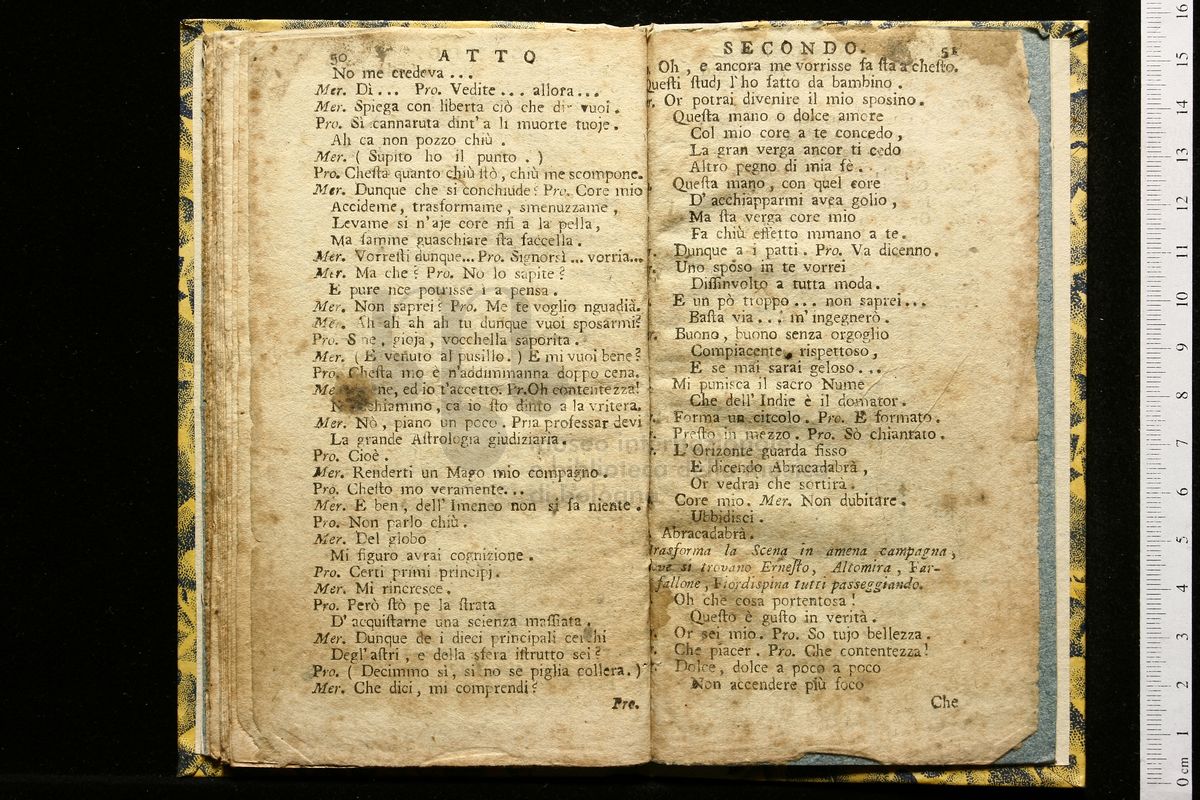 50 ATTO
No me credeva ...
Mer. Dì... Pro. Vedite ... allora...
Mer. Spiega con liberta ciò che vuoi.
Pro. Sì cannaruta dint' a li muorte tuoje.
Ah ca non pozzo chiù.
Mer. ( Supito ho il punto. )
Pro. Cheſta quanto chiù ſtò, chiù me scompone.
Mer. Dunque che si conchiude? Pro. Core mio
Accideme, trasformame, smenuzzame,
Levame si n'aje core nfi a la pella,
Ma famme guaschiare ſta faccella.
Mer. Vorreſti dunque... Pro. Signorsì ... vorria...
Mer. Ma che? Pro. No lo sapite?
E pure nce potrisse a pensa.
Mer. Non saprei? Pro. Me te voglio nguadià.
Mer. Ah ah ah ah tu dunque vuoi sposarmi?
Pro. gioja, vocchella saporita.
Mer. ( E venuto al pusillo. ) E mi vuoi bene?
Pro. Cheſta mo è n'addimmanna doppo cena.
ed io t'accetto. Pr. Oh contentezza!
ca io ſto dinto a la vritera.
Mer. Nò, piano un poco. Pria professar devi
La grande Aſtrologia giudiziaria.
Pro. Cioè.
Mer. Renderti un Mago mio compagno.
Pro. Cheſto mo veramente...
Mer. E ben, dell' Imeneo non si fa niente.
Pro. Non parlo chiù.
Mer. Del globo
Mi figuro avrai cognizione.
Pro. Certi primi principj.
Mer. Mi rincresce.
Pro. Però ſtò pe la ſtrata
D' acquiſtarne una scienza maſſiata.
Mer. Dunque de i dieci principali cerchi
Degl' aſtri, e della sfera iſtrutto sei?
Pro. ( Decimmo si, si no se piglia collera. )
Mer. Che dici, mi comprendi?
Pro.
SECONDO. 51
Oh, e ancora me vorrisse fa ſta a cheſto.
Queſti ſtudj l'ho fatto da bambino.
Or potrai divenire il mio sposino.
Queſta mano o dolce amore
Col mio core a te concedo,
La gran verga ancor ti cedo
Altro pegno di mia fè..
Queſta mano, con quel core
D' acchiapparmi avea golio,
Ma ſta verga core mio
Fa chiù effetto mmano a te.
Dunque a i patti. Pro. Va dicenno.
Uno sposo in te vorrei
Diſſinvolto a tutta moda.
E un pò troppo... non saprei...
Baſta via... m' ingegnerò.
Buono, buono senza orgoglio
Compiacente, rispettoso,
E se mai sarai geloso...
Mi punisca il sacro Nume
Che dell' Indie è il domator.
Forma un circolo. Pro. E formato.
Preſto in mezzo. Pro. Sò chiantato.
L' Orizonte guarda fisso
E dicendo Abracadabrà,
Or vedrai che sortirà.
Core mio. Mer. Non dubitare.
Ubbidisci.
Abracadabrà.
trasforma la Scena in amena campagna,
ove si trovano Erneſto, Altomira, Far-
fallone, Fiordispina tutti passeggiando.
Oh che cosa portentosa!
Queſto è guſto in verità.
Or sei mio. Pro. So tujo bellezza.
Che piacer. Pro. Che contentezza!
Dolce, dolce a poco a poco
Non accendere più foco
Che